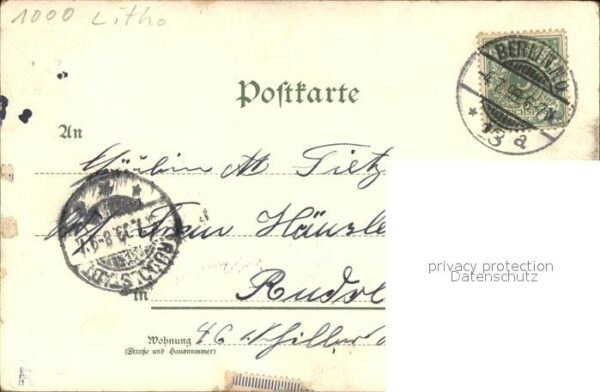 1000 Litho
BERLIN N.O.
13 a
Postkarte
An
Fräulein M Tietz
Frau Häusle
RUDOLSTADT
privacy protection
Datenschutz
in Rudol
Wohnung 46 Schiller
(Straße und Hausnummer)